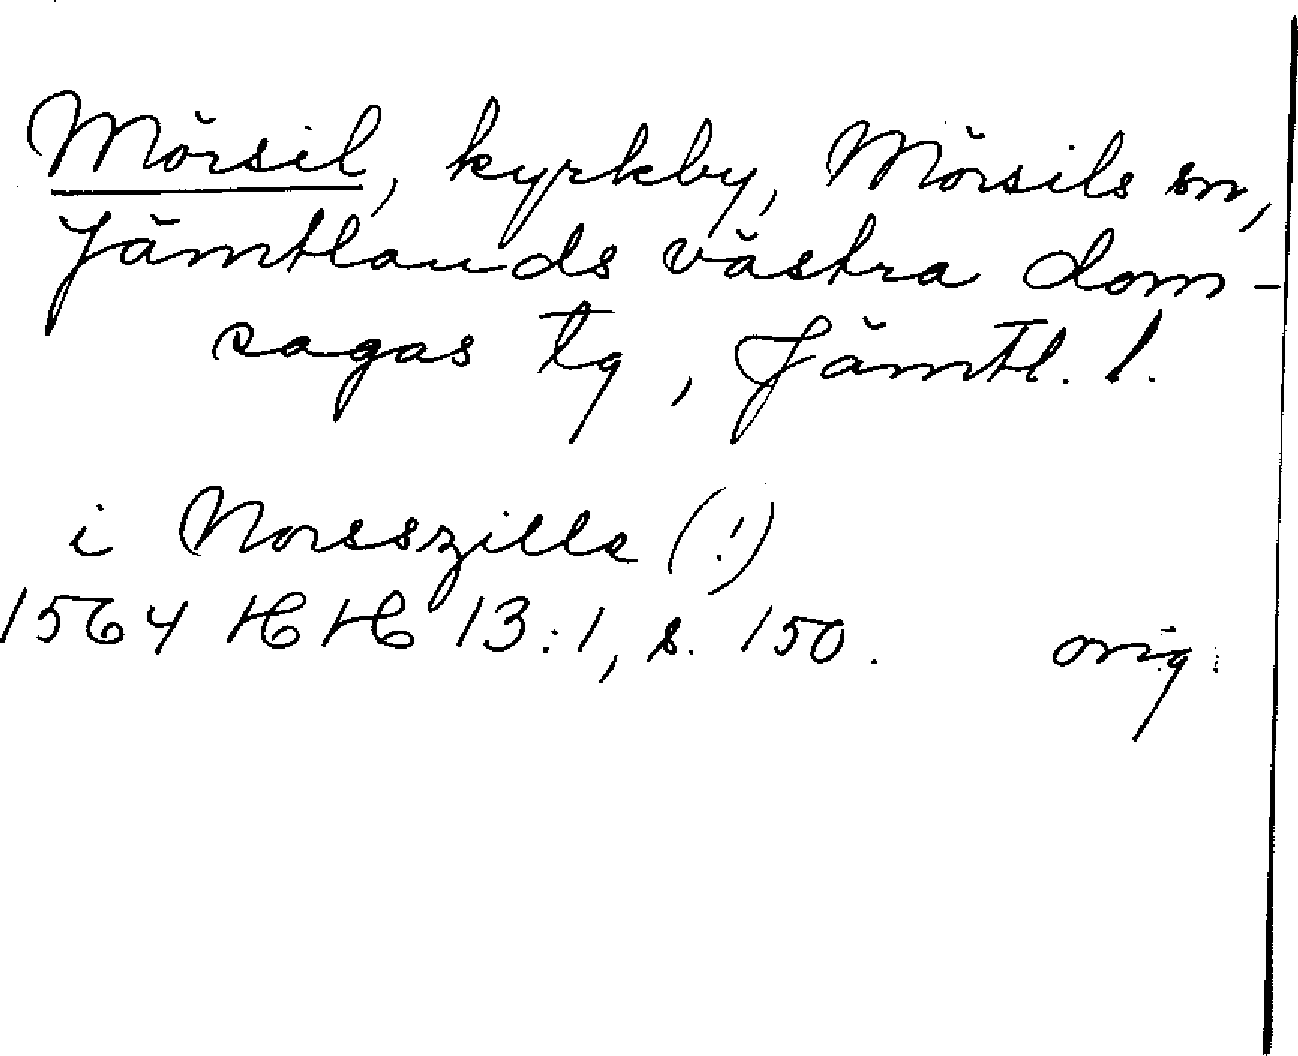 Mörsil, kyrkby, Mörsils sn,
Jämtlands västra dom-
sagas tg, Jämtl. l.
i Norsszille (!)
1564 HH 13:1, s. 150. orig.